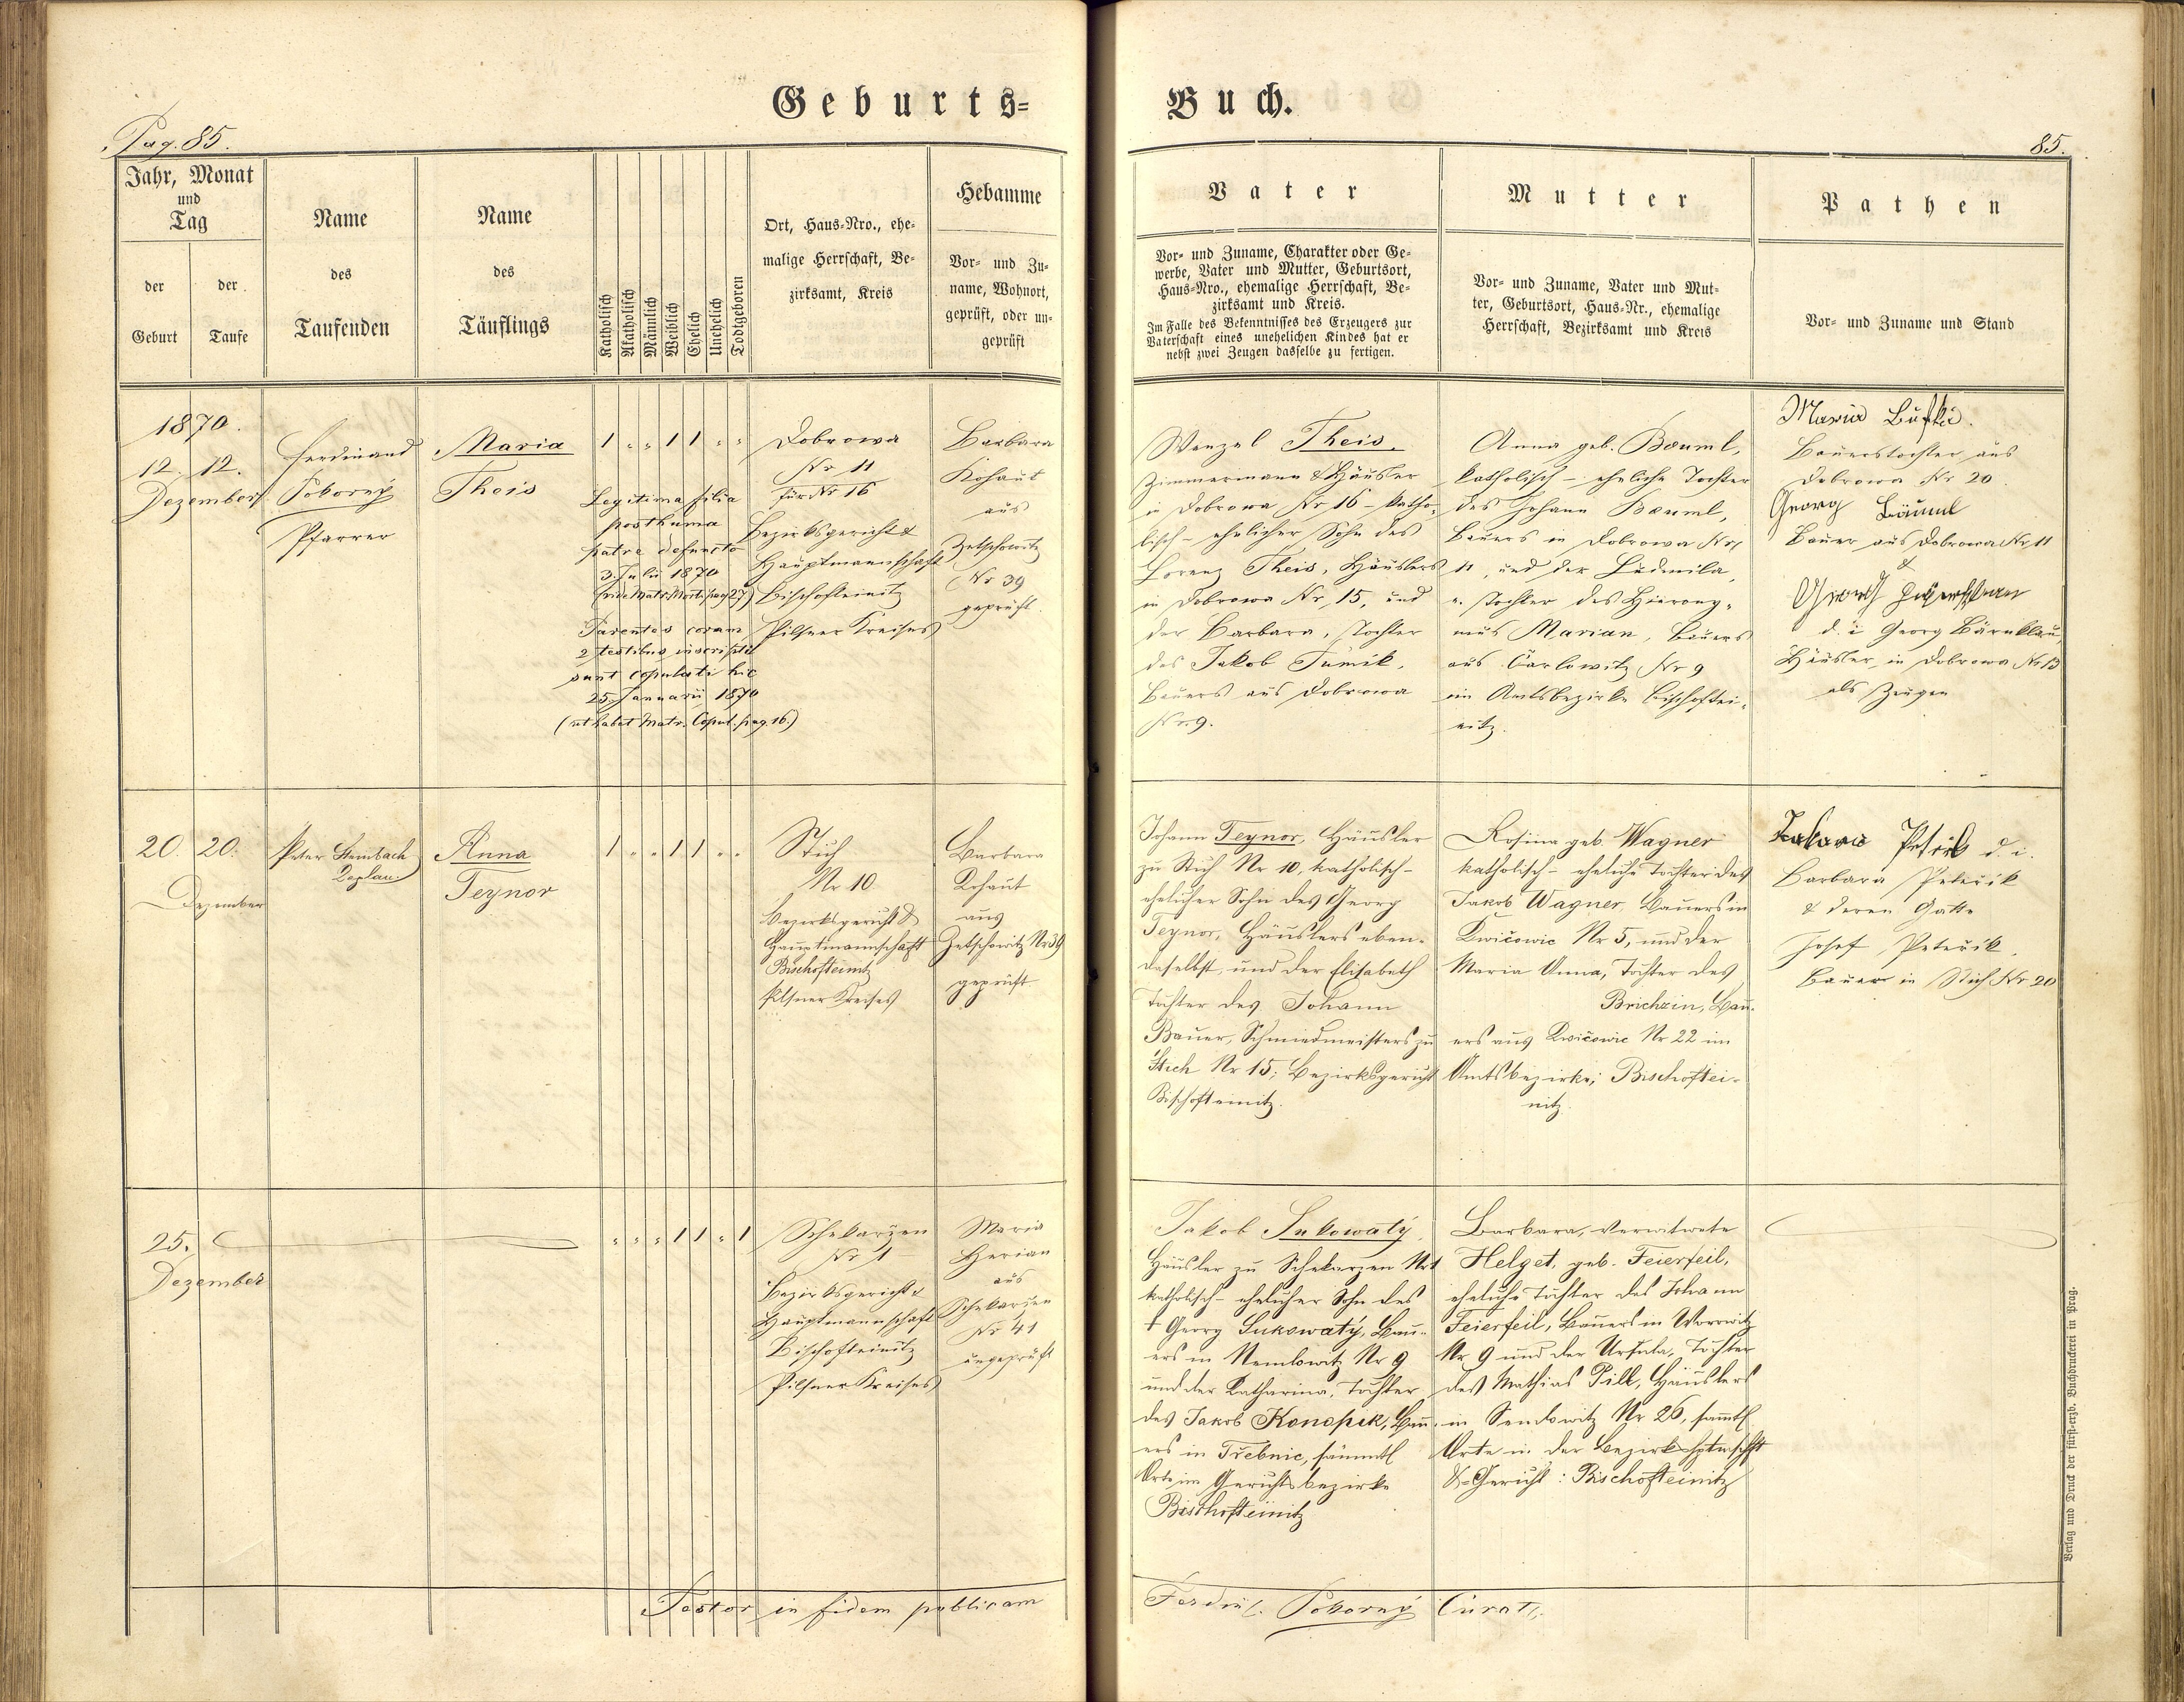 Geburts=
Buch.
Pag. 85.
85.
Jahr, Monat
und
Tag
der
Geburt
der
Taufe
Name
des
Taufenden
Name
des
Täuflings
Katholisch
Akatholisch
Männlich
Weiblich
Ehelich
Unehelich
Todtgeboren
Ort, Haus=Nro., ehe=
malige Herrschaft, Be=
zirksamt, Kreis
Hebamme
Vor= und Zu=
name, Wohnort,
geprüft, oder un=
geprüft
Vater
Vor= und Zuname, Charakter oder Ge=
werbe, Vater und Mutter, Geburtsort,
Haus=Nro., ehemalige Herrschaft, Be=
zirksamt und Kreis.
Im Falle des Bekenntnisses des Erzeugers zur
Vaterschaft eines unehelichen Kindes hat er
nebst zwei Zeugen dasselbe zu fertigen.
Mutter
Vor= und Zuname, Vater und Mut=
ter, Geburtsort, Haus=Nr., ehemalige
Herrschaft, Bezirksamt und Kreis
Pathen
Vor= und Zuname und Stand
1870.
12. 12.
Dezember
Ferdinand
Pokorný
Pfarrer
Maria
Theis
1 „ „ 1 1 „ „
Legitima filia
posthuma
patre defuncto
3. Julii 1870
(vide Matr. Mort. pag 27)
Parentes coram
2 testibus inscriptis
sunt copulati hic
25. Januarii 1870
(ut habet Matr. Copul. pag. 16.)
Dobrowa
Nr 11
für Nr 16
Bezirksgericht &
Hauptmannschaft
Bischofteinitz
Pilsner Kreises
Barbara
Kohaut
aus
Zetschowitz
Nr 39
geprüft.
Wenzel Theis,
Zimmermann & Häusler
in Dobrowa Nr 16 – katho=
lisch – ehelicher Sohn des
Lorenz Theis, Häuslers
in Dobrowa Nr 15, und
der Barbara, Tochter
des Jakob Tumik,
Bauers aus Dobrowa
Nr 9.
Anna geb. Bæuml,
katholisch – eheliche Tochter
des Johann Bæuml,
Bauers in Dobrowa Nr
11, und der Ludmila,
e. Tochter des Hierony=
mus Marian, Bauers
aus Čarlowitz Nr 9
im Amtsbezirke Bischoftei=
nitz.
Maria
Bauerstochter aus
Dobrowa Nr 20.
Georg Bäuml
Bauer aus Dobrowa Nr 11
&
d. i. Georg Bärnklau,
Häusler in Dobrowa Nr 13
als Zeugen
20. 20.
Dezember
Peter Steinbach
Kaplan.
Anna
Teynor
1 „ „ 1 1 „ „
Stich
Nr 10
Bezirksgericht &
Hauptmannschaft
Bischofteinitz
Pilsner Kreises
Barbara
Kohaut
aus
Zetschowitz Nr 39
geprüft
Johann Teynor, Häusler
zu Stich Nr 10, katholisch –
ehelicher Sohn des Georg
Teynor, Häuslers eben=
daselbst, und der Elisabeth
Tochter des Johann
Bauer, Schmiedmeisters zu
Stich Nr 15; Bezirksgericht
Bischofteinitz.
Rosina geb. Wagner
katholisch – eheliche Tochter des
Jakob Wagner, Bauers in
Kwičowic Nr 5, und der
Maria Anna, Tochter des
Brichzin, Bau=
ers aus Kwičowic Nr 22 im
Amtsbezirke: Bischoftei=
nitz.
d. i.
Barbara Peteřik
& deren Gatte
Josef Peteřik,
Bauer in Stich Nr 20
25.
Dezember
„ „ „ 1 1 „ 1
Schekarzen
Nr 1
Bezirksgericht &
Hauptmannschaft
Bischofteinitz
Pilsner Kreises
Maria
Herian
aus
Schekarzen
Nr 41
ungeprüft
Jakob Sukowatý,
Häusler zu Schekarzen Nr 1
katholisch – ehelicher Sohn des
† Georg Sukowatý, Bau=
ers in Nemlowitz Nr 9
und der Katharina, Tochter
des Jakob Konopik, Bau=
ers in Třebnic, sämmtl
Orte im Gerichtsbezirke
Bischofteinitz
Barbara, verwitwete
Helget, geb. Feierfeil,
eheliche Tochter des Johann
Feierfeil, Bauers in Worowitz
Nr 9 und der Ursula, Tochter
des Mathias Pill, Häuslers
in Semlowitz Nr 26, sämtl
Orte in der Bezirkshptmschft
&=Gericht: Bischofteinitz
Testor in fidem publicam
Ferdin. Pokorný Curat.
Verlag und Druck der fürst=erzb. Buchdruckerei in Prag.